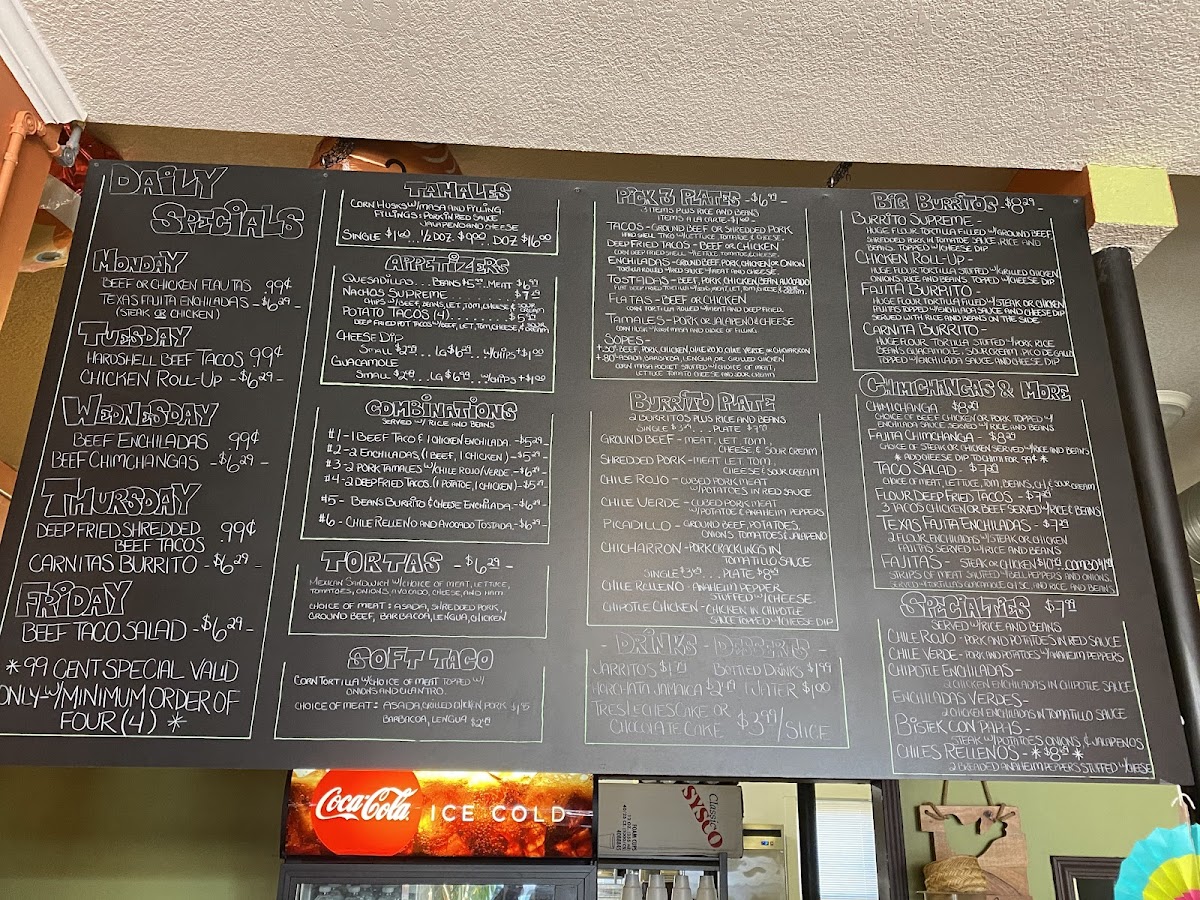 DAILY
SPECIALS
MONDAY
BEEF OR CHICKEN FLAUTAS 99¢
TEXAS FAJITA ENCHILADAS - $6.29 -
(STEAK OR CHICKEN)
TUESDAY
HARDSHELL BEEF TACOS 99¢
CHICKEN ROLL-UP - $6.29 -
WEDNESDAY
BEEF ENCHILADAS 99¢
BEEF CHIMCHANGAS - $6.29 -
THURSDAY
DEEP FRIED SHREDDED 99¢
BEEF TACOS
CARNITAS BURRITO - $6.29 -
FRIDAY
BEEF TACO SALAD - $6.29 -
* 99 CENT SPECIAL VALID
ONLY W/MINIMUM ORDER OF
FOUR (4) *
TAMALES
CORN HUSKS W/MASA AND FILLING.
FILLINGS: PORK IN RED SAUCE
JALAPENO AND CHEESE
SINGLE $1.60 ... ½ DOZ. $9.00. DOZ $16.00
APPETIZERS
QUESADILLAS... BEANS $5.99..MEAT $6.99
NACHOS SUPREME
CHIPS W/BEEF, BEANS, LET, TOM, CHEESE & SOUR CREAM
POTATO TACOS (4)
DEEP FRIED POT TACOS W/BEEF, LET, TOM, CHEESE & SOUR CREAM
CHEESE DIP
SMALL $2.99 ... LG $6.99 ... W/CHIPS + $1.00
GUACAMOLE
SMALL $2.99 ... LG $6.99 ... W/CHIPS + $1.00
COMBINATIONS
SERVED W/ RICE AND BEANS
#1 - 1 BEEF TACO & 1 CHICKEN ENCHILADA. - $5.29 -
#2 - 2 ENCHILADAS, (1 BEEF, 1 CHICKEN) - $5.29 -
#3 - 2 PORK TAMALES W/CHILE ROJO/VERDE - $6.29 -
#4 - 2 DEEP FRIED TACOS. (1 POTATO, 1 CHICKEN) - $5.29
#5 - BEANS BURRITO & CHEESE ENCHILADA. - $6.29 -
#6 - CHILE RELLENO AND AVOCADO TOSTADA. - $6.29 -
TORTAS - $6.29 -
MEXICAN SANDWICH W/CHOICE OF MEAT, LETTUCE,
TOMATOES, ONIONS, AVOCADO, CHEESE, AND HAM
CHOICE OF MEAT: ASADA, SHREDDED PORK,
GROUND BEEF, BARBACOA, LENGUA, CHICKEN
SOFT TACO
CORN TORTILLA W/CHOICE OF MEAT TOPPED W/
ONIONS AND CILANTRO.
CHOICE OF MEAT: ASADA, GRILLED CHICKEN, PORK
BARBACOA, LENGUA
PICK 3 PLATES - $6.99 -
3 ITEMS PLUS RICE AND BEANS
ITEMS A LA CARTE - $1.60 -
TACOS - GROUND BEEF OR SHREDDED PORK
HARD SHELL TACO W/LETTUCE, TOMATO & CHEESE.
DEEP FRIED TACOS - BEEF OR CHICKEN
CORN DEEP FRIED SHELL W/LETTUCE, TOMATO & CHEESE.
ENCHILADAS - GROUND BEEF, PORK, CHICKEN OR ONION
TORTILLA ROLLED W/RED SAUCE W/MEAT AND CHEESE.
TOSTADAS - BEEF, PORK, CHICKEN, BEAN, AVOCADO
FLATAS - BEEF OR CHICKEN
CORN TORTILLA ROLLED W/MEAT AND DEEP FRIED.
TAMALES - PORK OR JALAPENO & CHEESE
CORN HUSK W/CORN MASA AND CHOICE OF FILLING.
SOPES -
+.50¢ BEEF, PORK, CHICKEN, CHILE ROJO, CHILE VERDE OR CHICHARRON
+.80¢ ASADA, BARBACOA, LENGUA OR GRILLED CHICKEN
CORN MASA POCKET STUFFED W/CHOICE OF MEAT,
LETTUCE TOMATO CHEESE AND SOUR CREAM
BURRITO PLATE
2 BURRITOS PLUS RICE AND BEANS
SINGLE ... PLATE
GROUND BEEF - MEAT, LET, TOM,
CHEESE & SOUR CREAM
SHREDDED PORK - MEAT LET TOM,
CHEESE & SOUR CREAM
CHILE ROJO - CUBED PORK MEAT
W/POTATOES IN RED SAUCE
CHILE VERDE - CUBED PORK MEAT
W/POTATO & ANAHEIM PEPPERS
PICADILLO - GROUND BEEF, POTATOES,
ONIONS TOMATOES & JALAPENO
CHICHARRON - PORK CRACKLINGS IN
TOMATILLO SAUCE
SINGLE $3.69 ... PLATE $8.69
CHILE RELLENO - ANAHEIM PEPPER
STUFFED W/CHEESE.
CHIPOTLE CHICKEN - CHICKEN IN CHIPOTLE
SAUCE TOPPED W/CHEESE DIP
- DRINKS - DESSERTS -
JARRITOS BOTTLED DRINKS $1.99
HORCHATA JAMAICA WATER $1.00
TRES LECHES CAKE OR
CHOCOLATE CAKE $3.99/SLICE
BIG BURRITOS - $8.29 -
BURRITO SUPREME -
HUGE FLOUR TORTILLA FILLED W/GROUND BEEF,
SHREDDED PORK IN TOMATOE SAUCE, RICE AND
BEANS. TOPPED W/CHEESE DIP
CHICKEN ROLL-UP -
HUGE FLOUR TORTILLA STUFFED W/GRILLED CHICKEN
ONIONS, RICE, BEANS TOPPED W/CHEESE DIP
FAJITA BURRITO -
HUGE FLOUR TORTILLA FILLED W/STEAK OR CHICKEN
FAJITAS TOPPED W/ENCHILADA SAUCE AND CHEESE DIP
SERVED WITH RICE AND BEANS ON THE SIDE
CARNITA BURRITO -
HUGE FLOUR TORTILLA STUFFED W/PORK RICE
BEANS GUACAMOLE, SOUR CREAM, PICO DE GALLO
TOPPED W/ENCHILADA SAUCE AND CHEESE DIP
CHIMICHANGAS & MORE
CHIMICHANGA $8.29
CHOICE OF BEEF CHICKEN OR PORK TOPPED W/
ENCHILADA SAUCE SERVED W/RICE AND BEANS
FAJITA CHIMCHANGA - $8.29
CHOICE OF STEAK OR CHICKEN SERVED W/RICE AND BEANS
* ADD CHEESE DIP TO CHIMI FOR 99¢ *
TACO SALAD - $7.29
CHOICE OF MEAT, LETTUCE, TOM, BEANS, CH & SOUR CREAM
FLOUR DEEP FRIED TACOS - $7.29
3 TACOS CHICKEN OR BEEF SERVED W/RICE & BEANS
TEXAS FAJITA ENCHILADAS - $7.29
2 FLOUR ENCHILADAS W/STEAK OR CHICKEN
FAJITAS SERVED W/RICE AND BEANS
FAJITAS - STEAK OR CHICKEN
STRIPS OF MEAT SAUTEED W/BELL PEPPERS AND ONIONS.
SPECIALTIES
SERVED W/RICE AND BEANS
CHILE ROJO - PORK AND POTATOES IN RED SAUCE
CHILE VERDE - PORK AND POTATOES W/ANAHEIM PEPPERS
CHIPOTLE ENCHILADAS -
2 CHICKEN ENCHILADAS IN CHIPOTLE SAUCE
ENCHILADAS VERDES -
2 CHICKEN ENCHILADAS IN TOMATILLO SAUCE
BISTEK CON PAPAS -
STEAK W/POTATOES ONIONS, & JALAPENOS
CHILES RELLENOS - * $8.49 *
2 BREADED ANAHEIM PEPPERS STUFFED W/CHEESE
Coca-Cola ICE COLD
Classic
SYSCO
FOAM CUPS